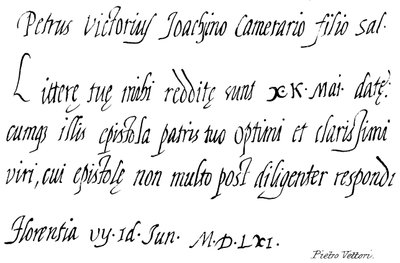 Petrus Victorius Joachino Camerario filio sal.
Litterę tuę mihi redditę sunt XX. Mai. datę:
cumq; illis epistola patris tuo optimi et clarissimi
viri, cui epistolę non multo post diligenter respondi
Florentia vy. Id. Jun. M.D.LXI.
Pietro Vettori.